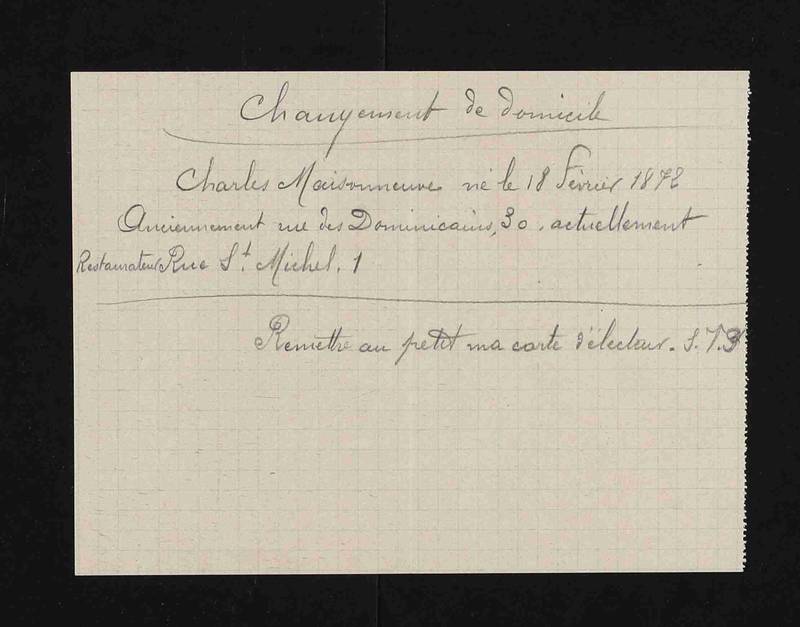 Changement de domicile
Charles Maisonneuve né le 18 février 1872
Anciennement rue des Dominicains, 30. actuellement
Restaurateur Rue St. Michel. 1
Remettre au petit ma carte d'électeur. S.T.